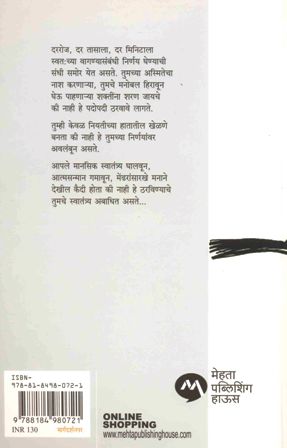 दररोज, दर तासाला, दर मिनिटाला
स्वत:च्या वागण्यासंबंधी निर्णय घेण्याची
संधी समोर येत असते. तुमच्या अस्मितेचा
नाश करणाऱ्या, तुमचे मनोबल हिरावून
घेऊ पाहणाऱ्या शक्तींना शरण जायचे
की नाही हे पदोपदी ठरवावे लागते.
तुम्ही केवळ नियतीच्या हातातील खेळणे
बनता की नाही हे तुमच्या निर्णयांवर
अवलंबून असते.
आपले मानसिक स्वातंत्र्य घालवून,
आत्मसन्मान गमावून, मेंढरांसारखे मनाने
देखील कैदी होता की नाही हे ठरविण्याचे
तुमचे स्वातंत्र्य अबाधित असते...
ISBN-
978-81-8498-072-1
9 788184 980721
INR 130 मार्गदर्शनपर
ONLINE
SHOPPING
www.mehtapublishinghouse.com
मेहता
पब्लिशिंग
हाऊस